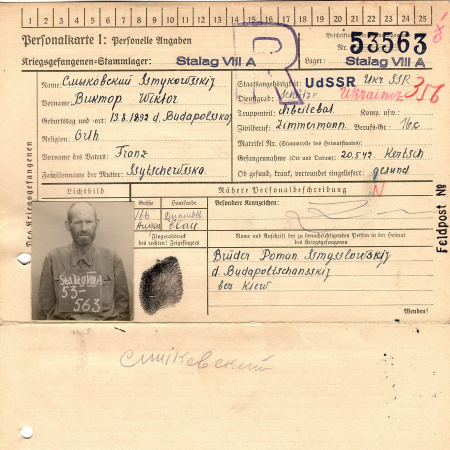 1 2 3 4 5 6 7 8 9 10 11 12 13 14 15 16 17 18 19 20 21 22 23 24 25
Personalkarte I: Personelle Angaben
Kriegsgefangenen-Stammlager: Stalag VIII A
Nr. 53563
Lager: Stalag VIII A
R
Des Kriegsgefangenen
Name:
Vorname: Виктор Wiktor
Geburtstag und -ort: 13.8.1892 d. Budapolsskoj
Religion: Orth
Vorname des Vaters: Franz
Familienname der Mutter:
Staatsangehörigkeit: UdSSR Ukr. SSR
Dienstgrad: Schütze Ukrainer
Truppenteil: Arbeitsbat. Komp. usw.:
Zivilberuf: Zimmermann Berufs-Gr.: 16c
Matrikel Nr. (Stammrolle des Heimatstaates):
Gefangennahme (Ort und Datum): 20.5.42 Kertsch
Ob gesund, krank, verwundet eingeliefert: gesund
N
Lichtbild
Nähere Personalbeschreibung
Größe Haarfarbe Besondere Kennzeichen:
166
Augen Blau
Fingerabdruck
des rechten! Zeigefingers
Name und Anschrift der zu benachrichtigenden Person in der Heimat
des Kriegsgefangenen
Bruder Roman
bei Kiew
Stalag VIII A
53-
563
Wenden!
Feldpost №